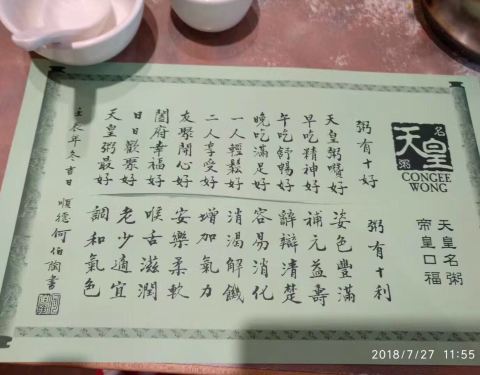 天皇
名
粥
CONGEE
WONG
天皇名粥
帝皇口福
粥有十好
天皇粥嚐好
早吃精神好
午吃舒暢好
晚吃滿足好
一人輕鬆好
二人享受好
友聚開心好
闔府幸福好
日日歡聚好
天皇粥最好
粥有十利
姿色豐滿
補元益壽
辭辯清楚
容易消化
消渴解饑
增加氣力
安樂柔軟
喉舌滋潤
老少適宜
調和氣色
壬辰年冬吉日 順德何伯陶書
2018/7/27 11:55